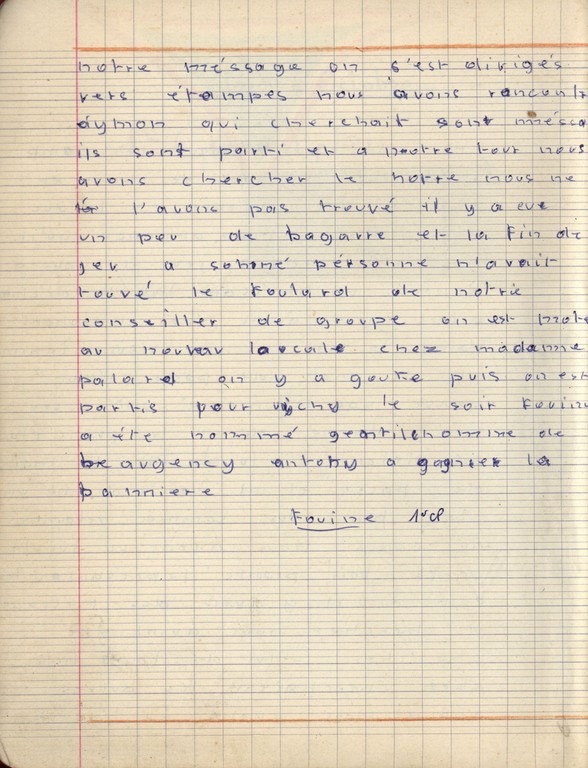 notre méssage on s'est dirigés
vers étampes nous avons rencont
aymon qui cherchait sont méssa
ils sont parti et a notre tour nous
avons chercher le notre nous ne
l'avons pas trouvé il y a eue
un peu de bagarre et la fin de
jeu a sonné personne n'avait
touvé le foulard de notre
conseiller de groupe on est
au nouvau laucale chez madame
palard on y a gouté puis on est
partis pour vichy le soir fouine
a été nommé gentilehomme de
beaugency antony a gagner la
banniere
Fouine